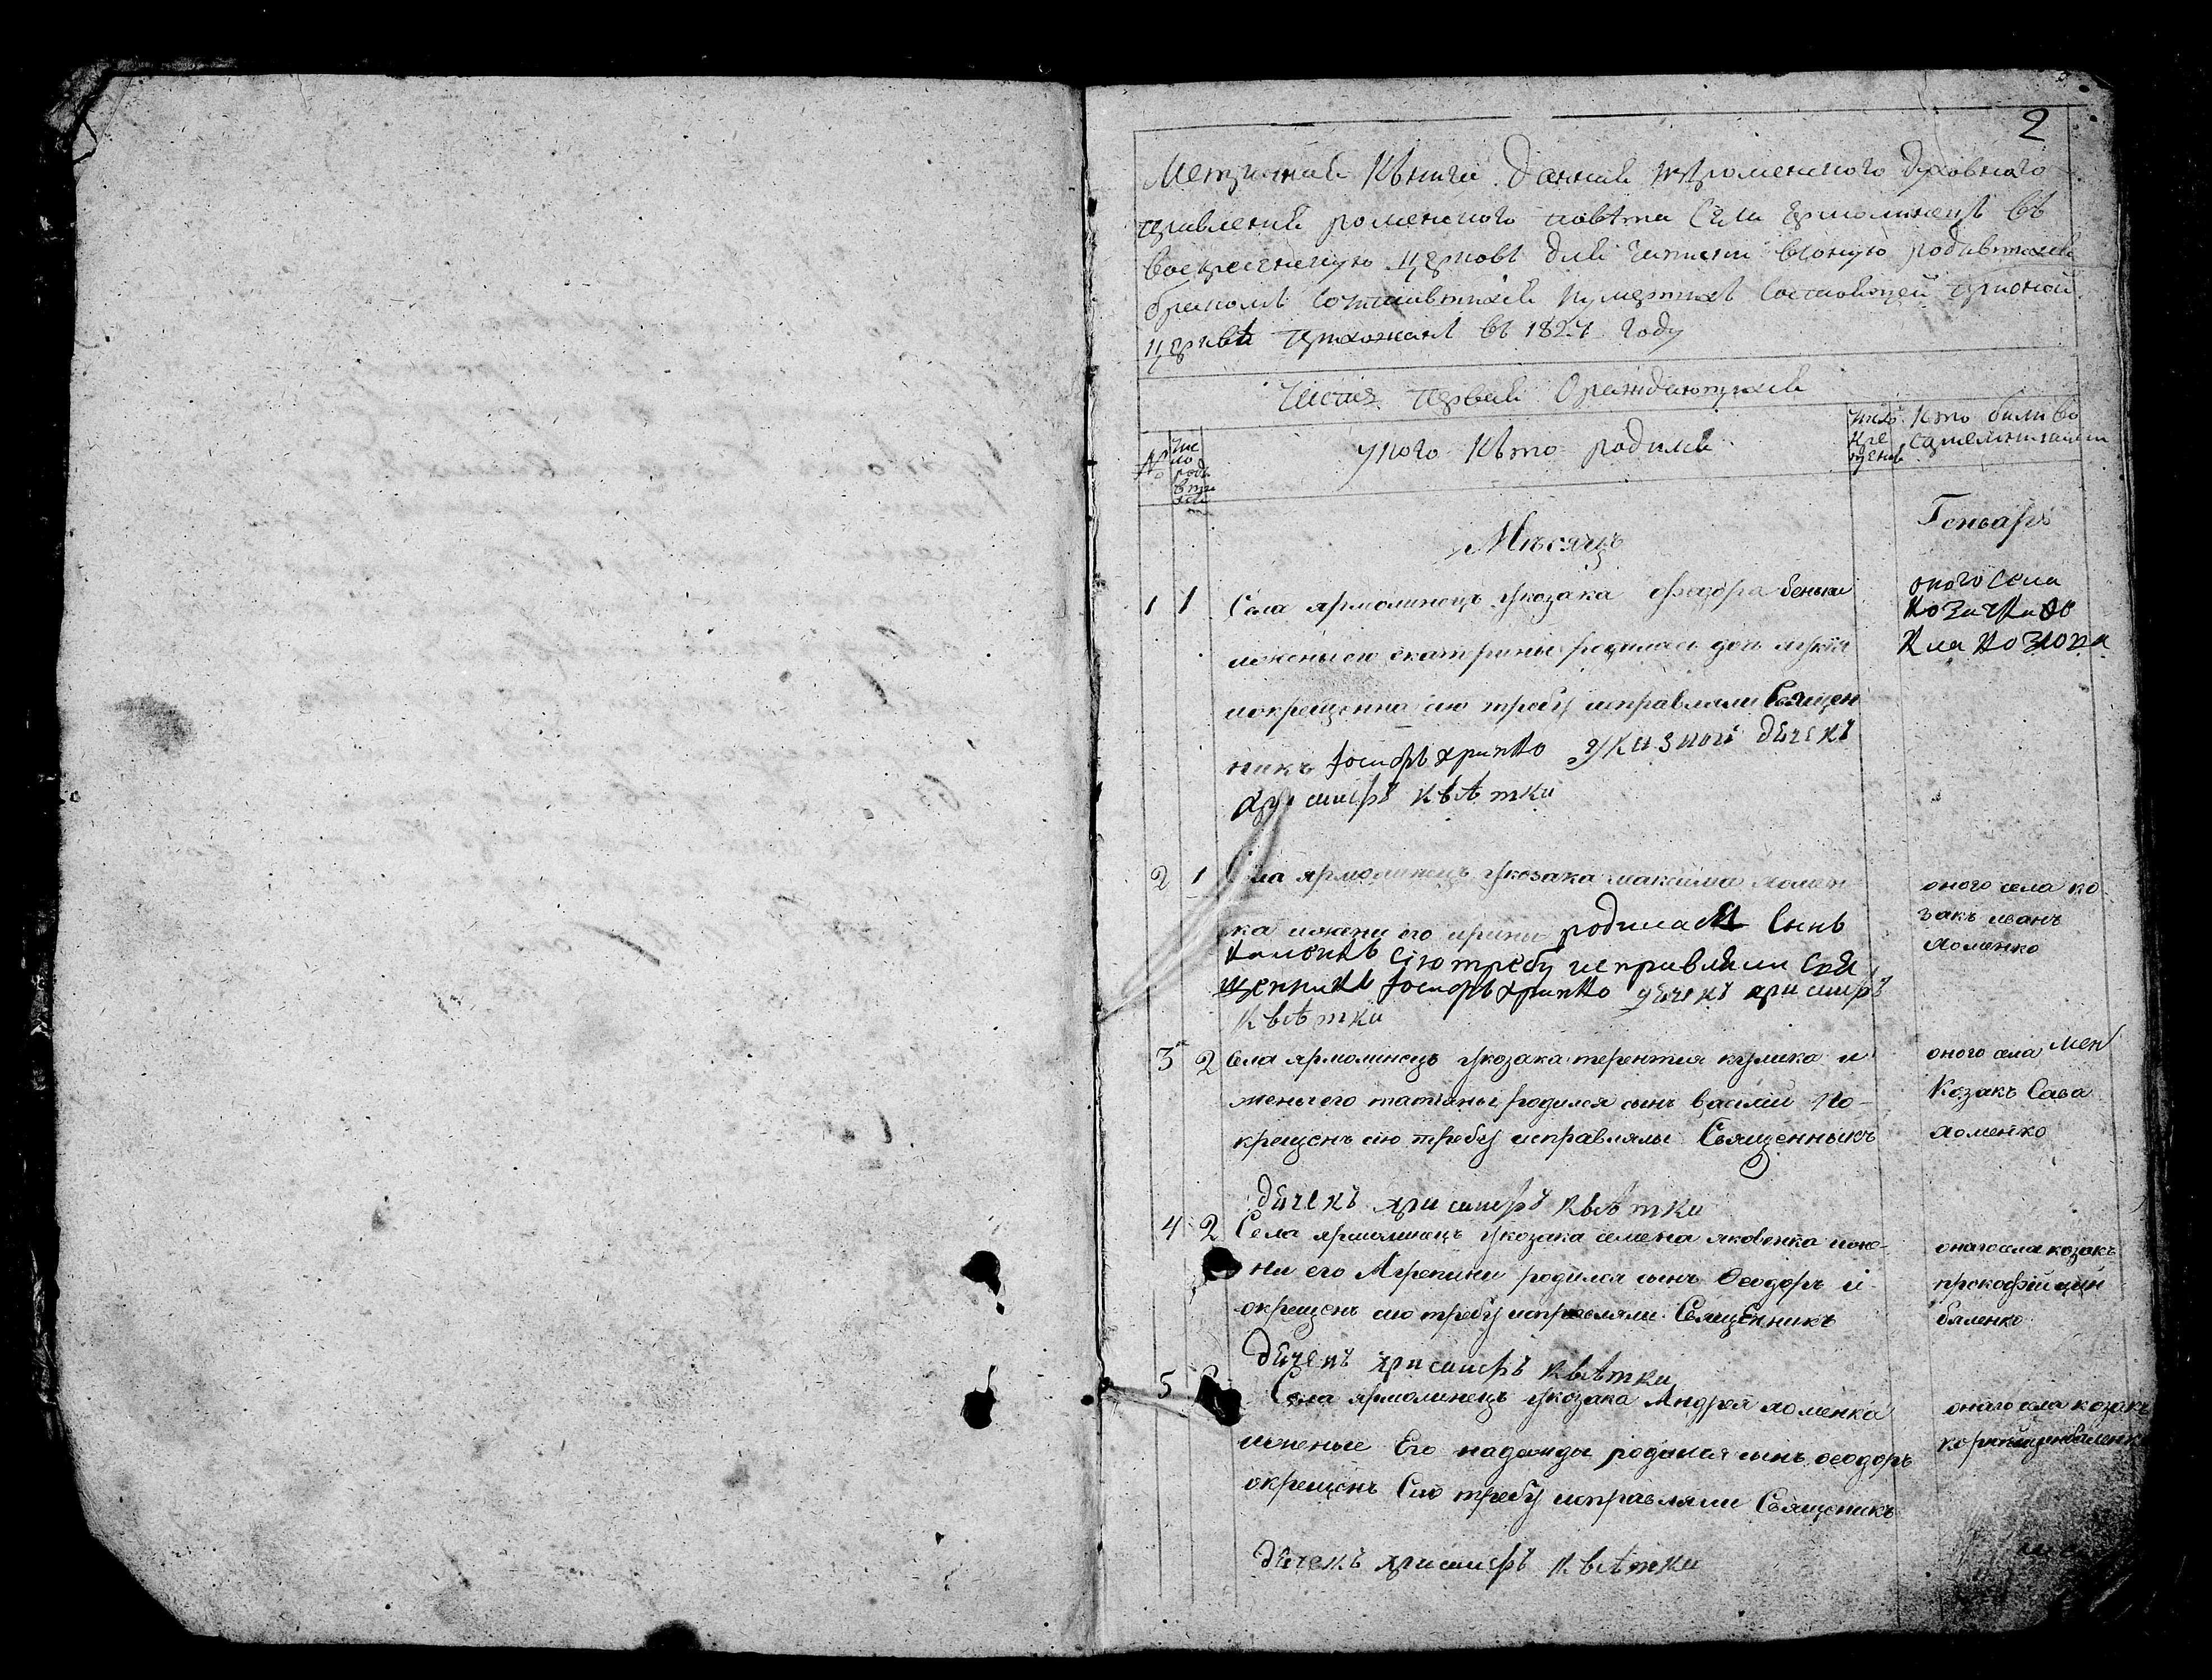 2
Метричная Кънига Данная изРоменского Духовного
правления роменского повѣта Села Ярмолинецъ въ
воскресенскую церковь для записи воную родившихся
бракомъ Сочтавшихся иумершихъ Состоящей прионой
церквѣ прихожанъ въ 1824 году
Часть первая Ораждающихся
№
Чис
ло
роди
вши
хся
укого Кто родился
число
кре
щения
Кто были во
Генварь
Мѣсяцъ
1 1 Села ярмолинецъ укозака федора
ижены его екатерины родилась дочь
иокрещенна сию требу исправляли Священ
никъ Іосифъ христо указной дячекъ
квѣтка
оного села
козачка
2 1 Села ярмолинецъ укозака максима хомен
ка ижени его ирини родился Сынъ
сіютребу исправляли Свя
щенникъ Іосифъ христо дячекъ
квѣтка
оного села ко
закъ иванъ
хоменко
3 2 Села ярмолинецъ укозака терентия кулика и
жены его татианы родился сынъ василий ио
крещенъ сию требу исправляли Священныкъ
дячекъ квѣтка
оного села
Козакъ Сава
хоменко
4 2 Села ярмолинецъ укозака семена яковенка ижо
ни его Агрепини родился сынъ Феодоръ и
окрещенъ сию требу исправляли СвящЕнникъ
дячекъ квѣтка
оного села козакъ
прокофій цим
баленко
5 Села ярмолинецъ укозака Андрея хоменка
ижены Его надежды родился сынъ феодоръ
окрещенъ Сию требу исправляли Священикъ
дячекъ квѣтка
оного села козакъ